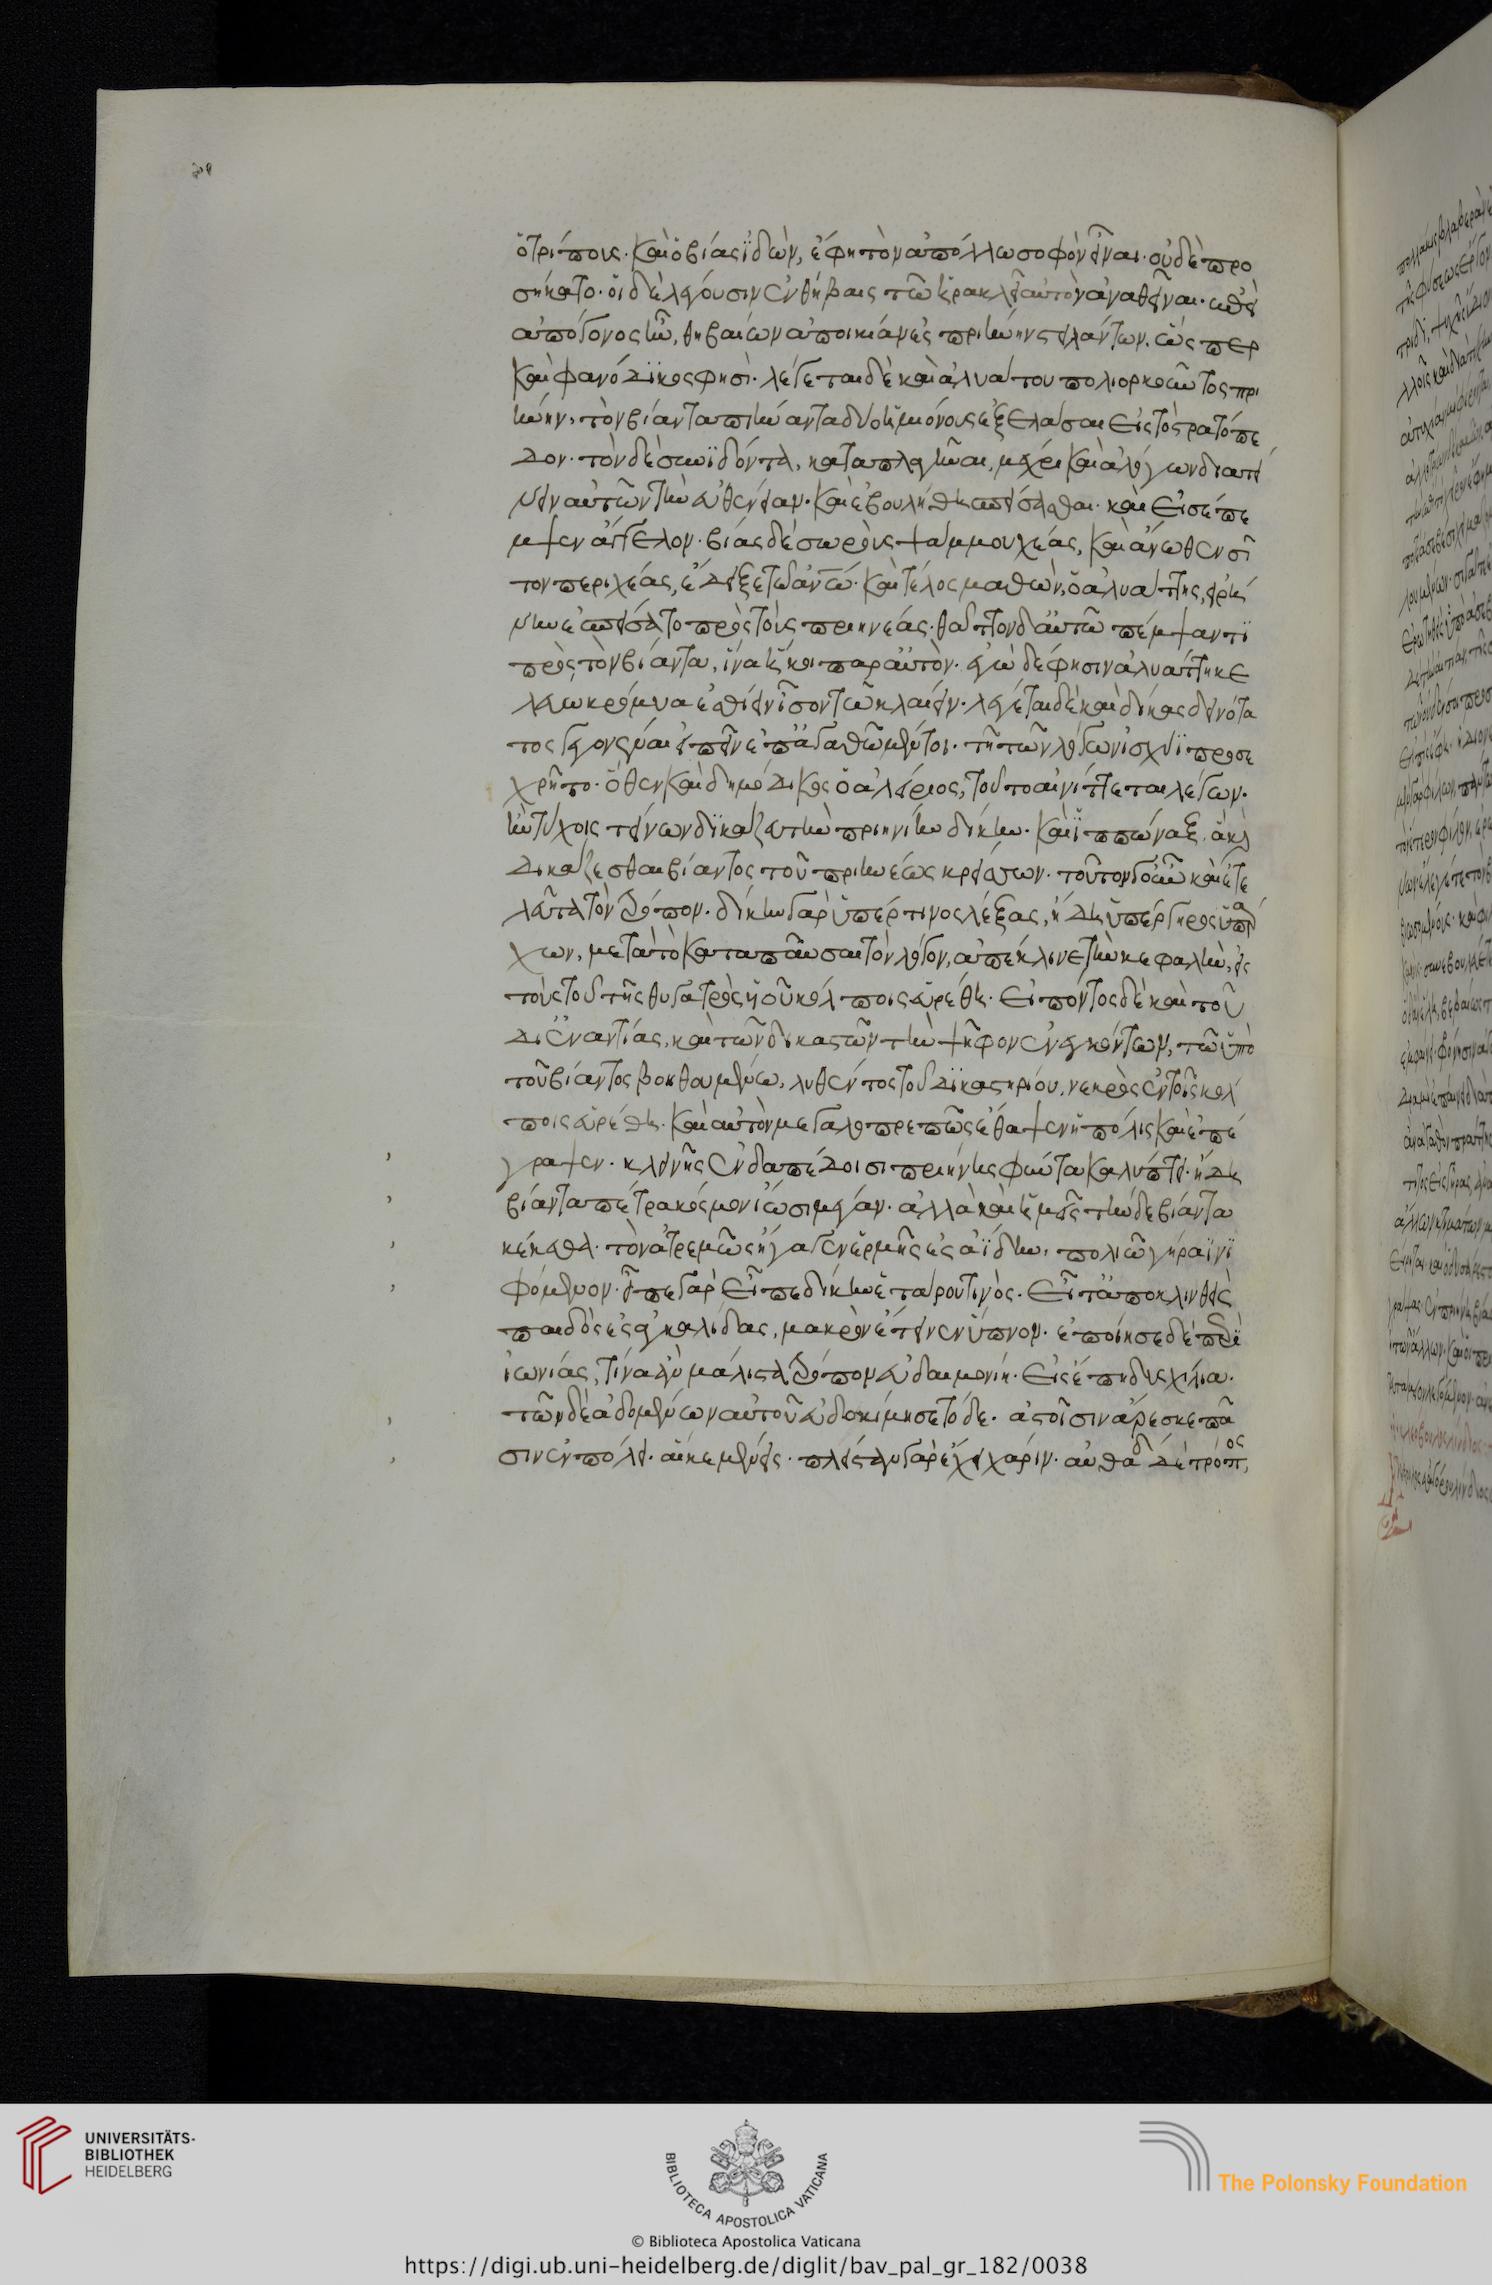 ὁ τρίπους· καὶ ὁ βίας ἰδὼν, ἔφη τὸν ἀπόλλω σοφὸν εἶναι· οὐδὲ προ
σήκατο· οἱ δὲ λέγουσιν ἐν θήβαις τῶ ἡρακλεῖ αὐτὸν ἀναθεῖναι· ἐπεὶ
ἀπόγονος ἦν θηβαίων ἀποικίαν εἰς πριήνην στειλάντων. ὥσπερ
καὶ φανόδικος φησὶ· λέγεται δὲ καὶ ἀλυάττου πολιορκοῦντος πρι
ήνην, τὸν βίαντα πιήναντα δύο ἡμιόνους ἐξελάσαι εἰς τὸ στρατόπε
δον· τὸν δὲ συνιδόντα, καταπλαγῆναι, μέχρι καὶ ἀλόγων διατεί
νειν αὐτῶν τὴν εὐθενείαν· καὶ ἐβουλήθη σπείσασθαι· καὶ εἰσέπε
μψεν ἄγγελον· βίας δὲ σωροὺς ψάμμου χέας, καὶ ἄνωθεν σῖ
τον περιχέας, ἔδειξε τῶ ἀνῶ· καὶ τέλος μαθὼν ὁ ἀλυάττης, εἰρή
νην ἐσπείσατο πρὸς τοὺς πριηνέας· θᾶττον δ' αὐτῶ πέμψαντι
πρὸς τὸν βίαντα, ἵνα ἥκοι παρ' αὐτὸν· ἐγὼ δέ φησιν ἀλυάττη κε
λεύω κρόμυα ἐσθίειν ἶσον τῶ κλαίειν· λέγεται δὲ καὶ δίκας δεινότα
τος γεγονέναι εἰπεῖν· ἐπ' ἀγαθῶ μέντοι τῆ τῶν λόγων ἰσχύϊ προσε
χρῆτο· ὅθεν καὶ δημόδικος ὁ ἀλέριος, τοῦτο αἰνίττεται λέγων·
ἢν τύχοις τείνων δικάζευ τὴν πριηνίην δίκην· καὶ ἱππώναξ·
δικάζεσθαι βίαντος τοῦ πριηνέως κρείσσων· τοῦτον δ' οὖν καὶ ἐτε
λεύτα τὸν τρόπον· δίκην γὰρ ὑπέρ τινος λέξας, ἤδη ὑπέργηρος ὑπάρ
χων, μετὰ τὸ καταπαῦσαι τὸν λόγον, ἀπέκλινε τὴν κεφαλὴν, εἰς
τοὺς τοῦ τῆς θυγατρὸς υἱοῦ κόλποις εὑρέθη· εἰπόντος δὲ καὶ τοῦ
δι' ἐναντίας, καὶ τῶν δικαστῶν τὴν ψῆφον ἐνεγκόντων, τῶ ὑπὸ
τοῦ βίαντος βοηθουμένω, λυθέντος τοῦ δικαστηρίου, νεκρὸς ἐν τοῖς κόλ
ποις εὑρέθη· καὶ αὐτὸν μεγαλοπρεπῶς ἔθαψεν ἡ πόλις καὶ ἐπέ
γραψεν· κλεινῆς ἐν δαπέδοισι πριήνης φῶντα καλύπτει· ἥδε
βίαντα πέτρα κόσμον ἰώσι μέγαν· ἀλλὰ καὶ ἡμεῖς τήνδε βίαντα
κέκευθα· τὸν ἀτρεμῶς ἤγαγεν ἑρμῆς εἰς ἀΐδην, πολιῶ γήραϊ νι
φόμενον· εἶπε γὰρ εἶπε δίκην ἑταίρου τινὸς· εἶτ' ἀποκλινθεὶς
παιδὸς ἐς ἀγκαλίδας, μακρὸν ἔτεινεν ὕπνον· ἐποίησε δὲ περὶ
ἰωνίας, τίνα ἂν μάλιστα τρόπον εὐδαιμονίη· εἰς ἔπη δισχίλια·
τῶν δὲ ἀδομένων αὐτοῦ εὐδοκίμησε τόδε· ἀστοῖσιν ἄρεσκε πᾶ
σιν ἐν πόλει· αἴ κε μένῃς· πλείσταν γὰρ ἔχει χάριν· αὐθάδης δὲ τρόπος
UNIVERSITÄTS-
BIBLIOTHEK
HEIDELBERG
BIBLIOTECA APOSTOLICA VATICANA
The Polonsky Foundation
© Biblioteca Apostolica Vaticana
https://digi.ub.uni-heidelberg.de/diglit/bav_pal_gr_182/0038